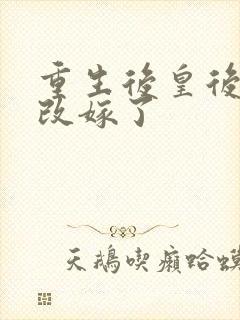 重生後皇後
改嫁了
天鵝喫癩蛤蟆